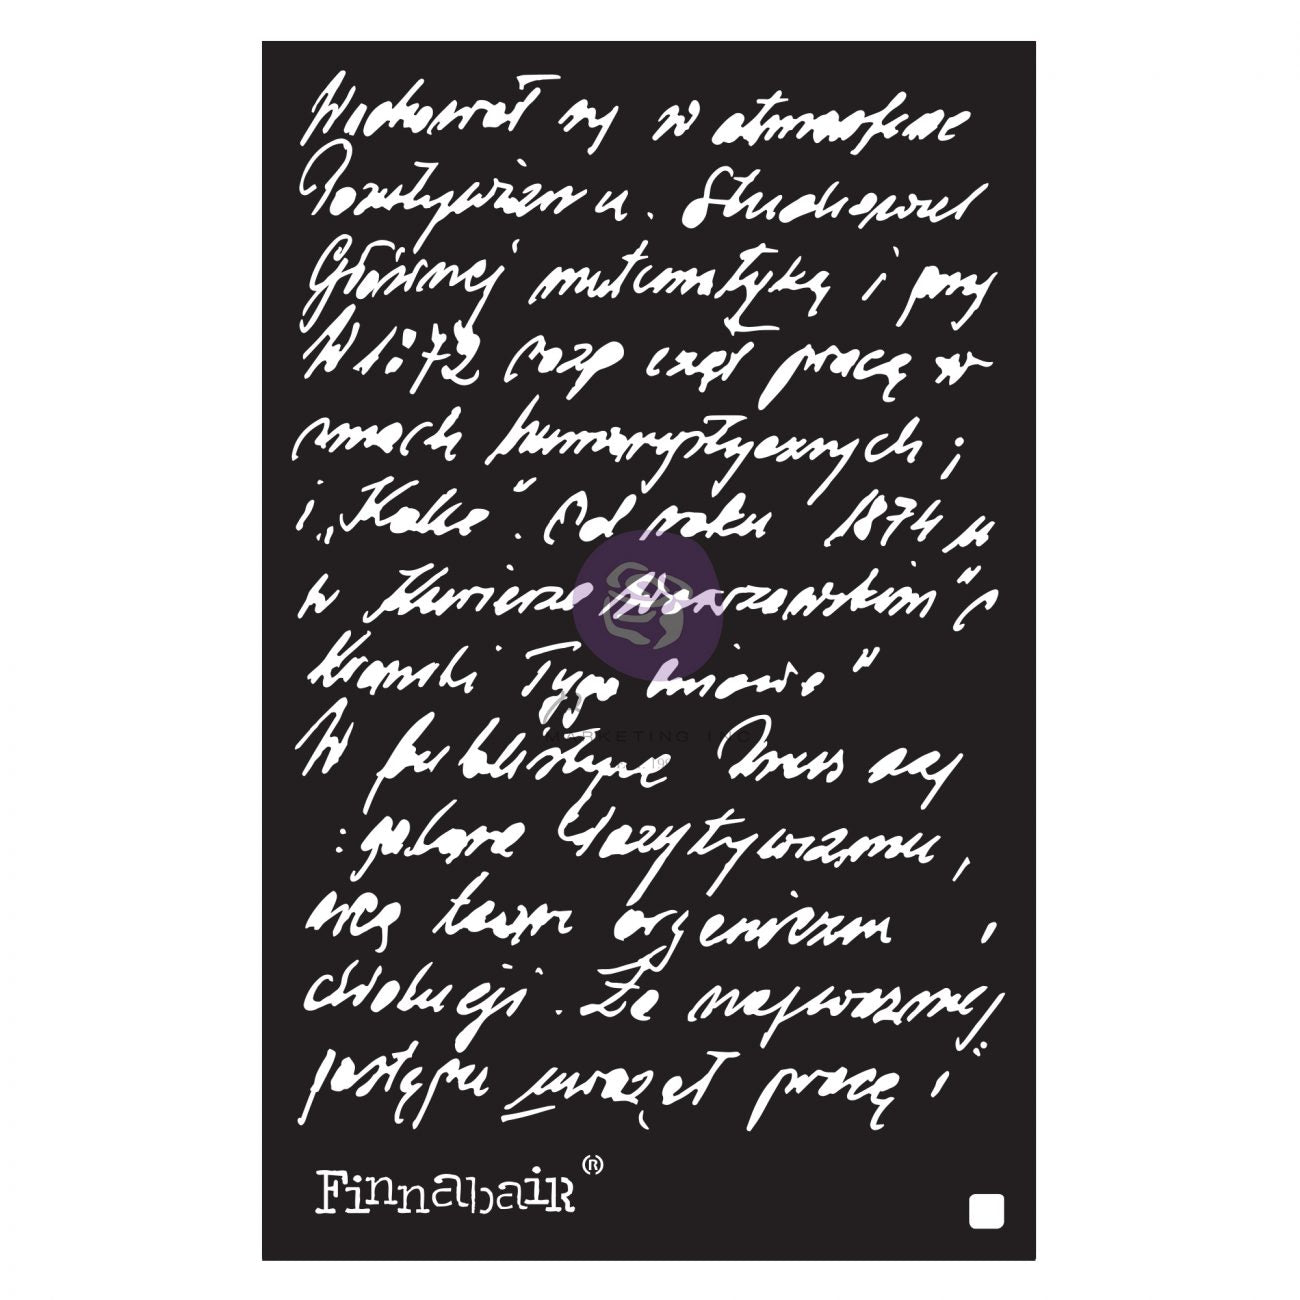 Wichował się w atmosferze
Pozytywizmu. Studiował
Głównej matematykę i przy
W 1872 rozp czął pracę w
smach humorystycznych ;
i „Kolce". Od roku 1874 u
w Kurierze Warszawskim"
Kronski Tygo dniowe"
W publistyce
: golarne Pozytywizmu,
organizm i
ewolucji. Za najważniej
postępu uważał pracę i
Finnabair (R)
MARKETING INC